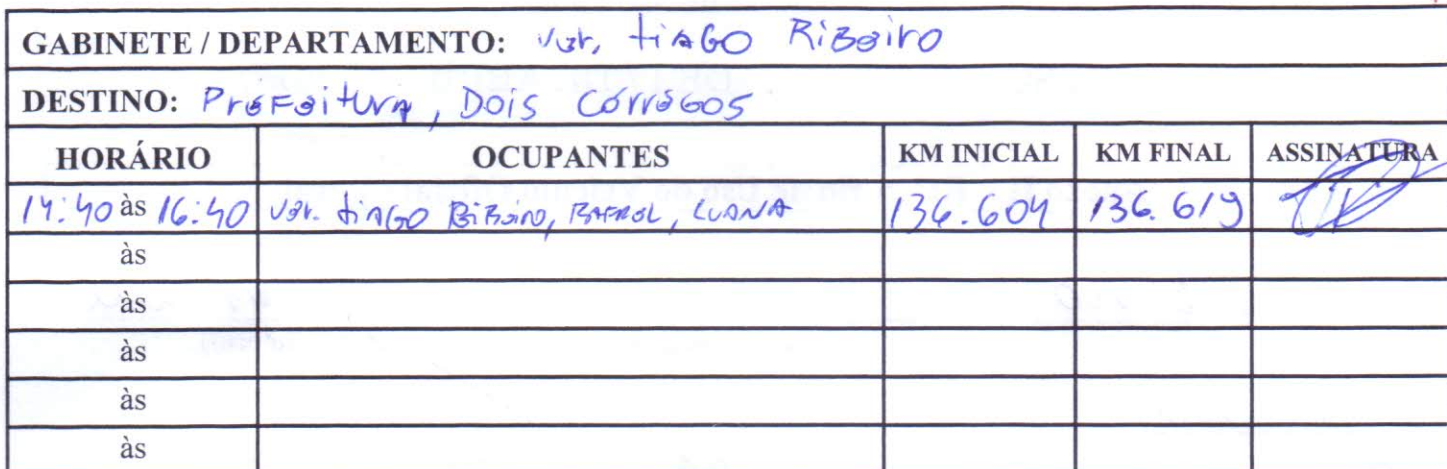 GABINETE / DEPARTAMENTO: Ver. tiAGO Ribeiro
DESTINO: PreFeiturA, Dois Córregos
HORÁRIO OCUPANTES KM INICIAL KM FINAL ASSINATURA
14:40 às 16:40 Ver. tiAGO RiBeiro, RAFAEL, LUANA 136.604 136.619
às
às
às
às
às